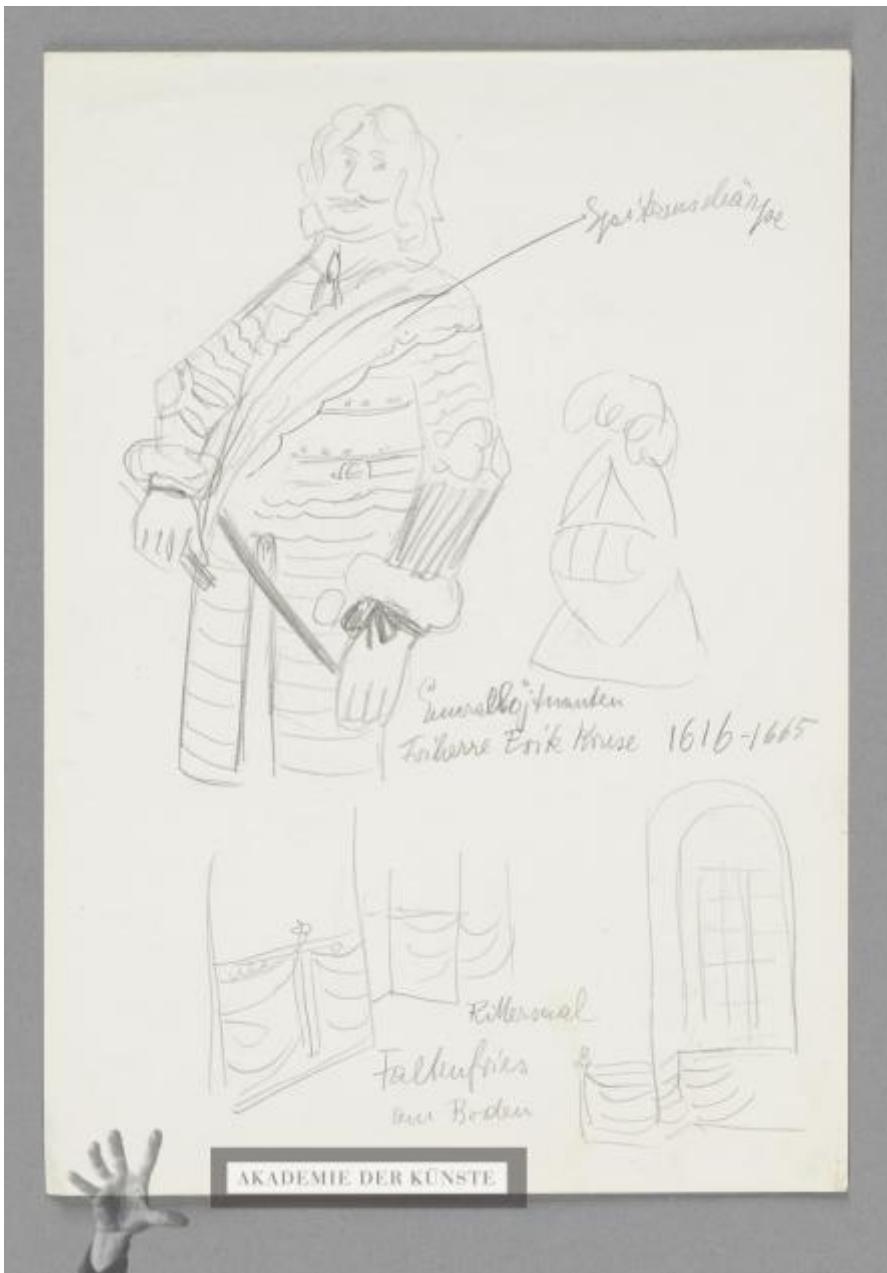 Spitzenschärpe
Generallöjtnanten
Friherre Erik Kruse 1616-1665
Rittersaal
Faltenfries
am Boden
AKADEMIE DER KÜNSTE